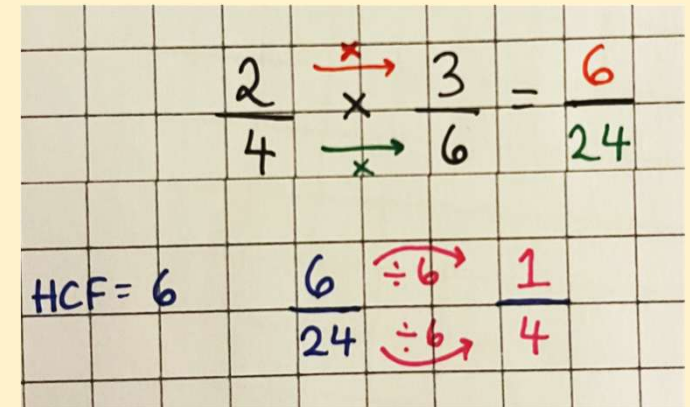 2/4 × 3/6 = 6/24
×
×
HCF = 6 6/24 ÷6 1/4
÷6